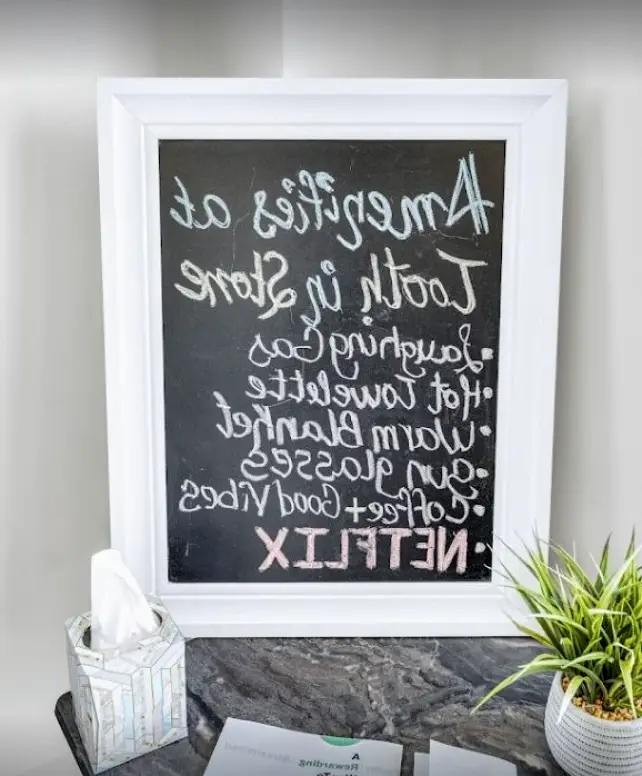 Amenities at
Tooth in Stone
• Laughing Gas
• Hot Towelette
• Warm Blanket
• Sun glasses
• Coffee + Good Vibes
• NETFLIX
A
Rewarding
Way To